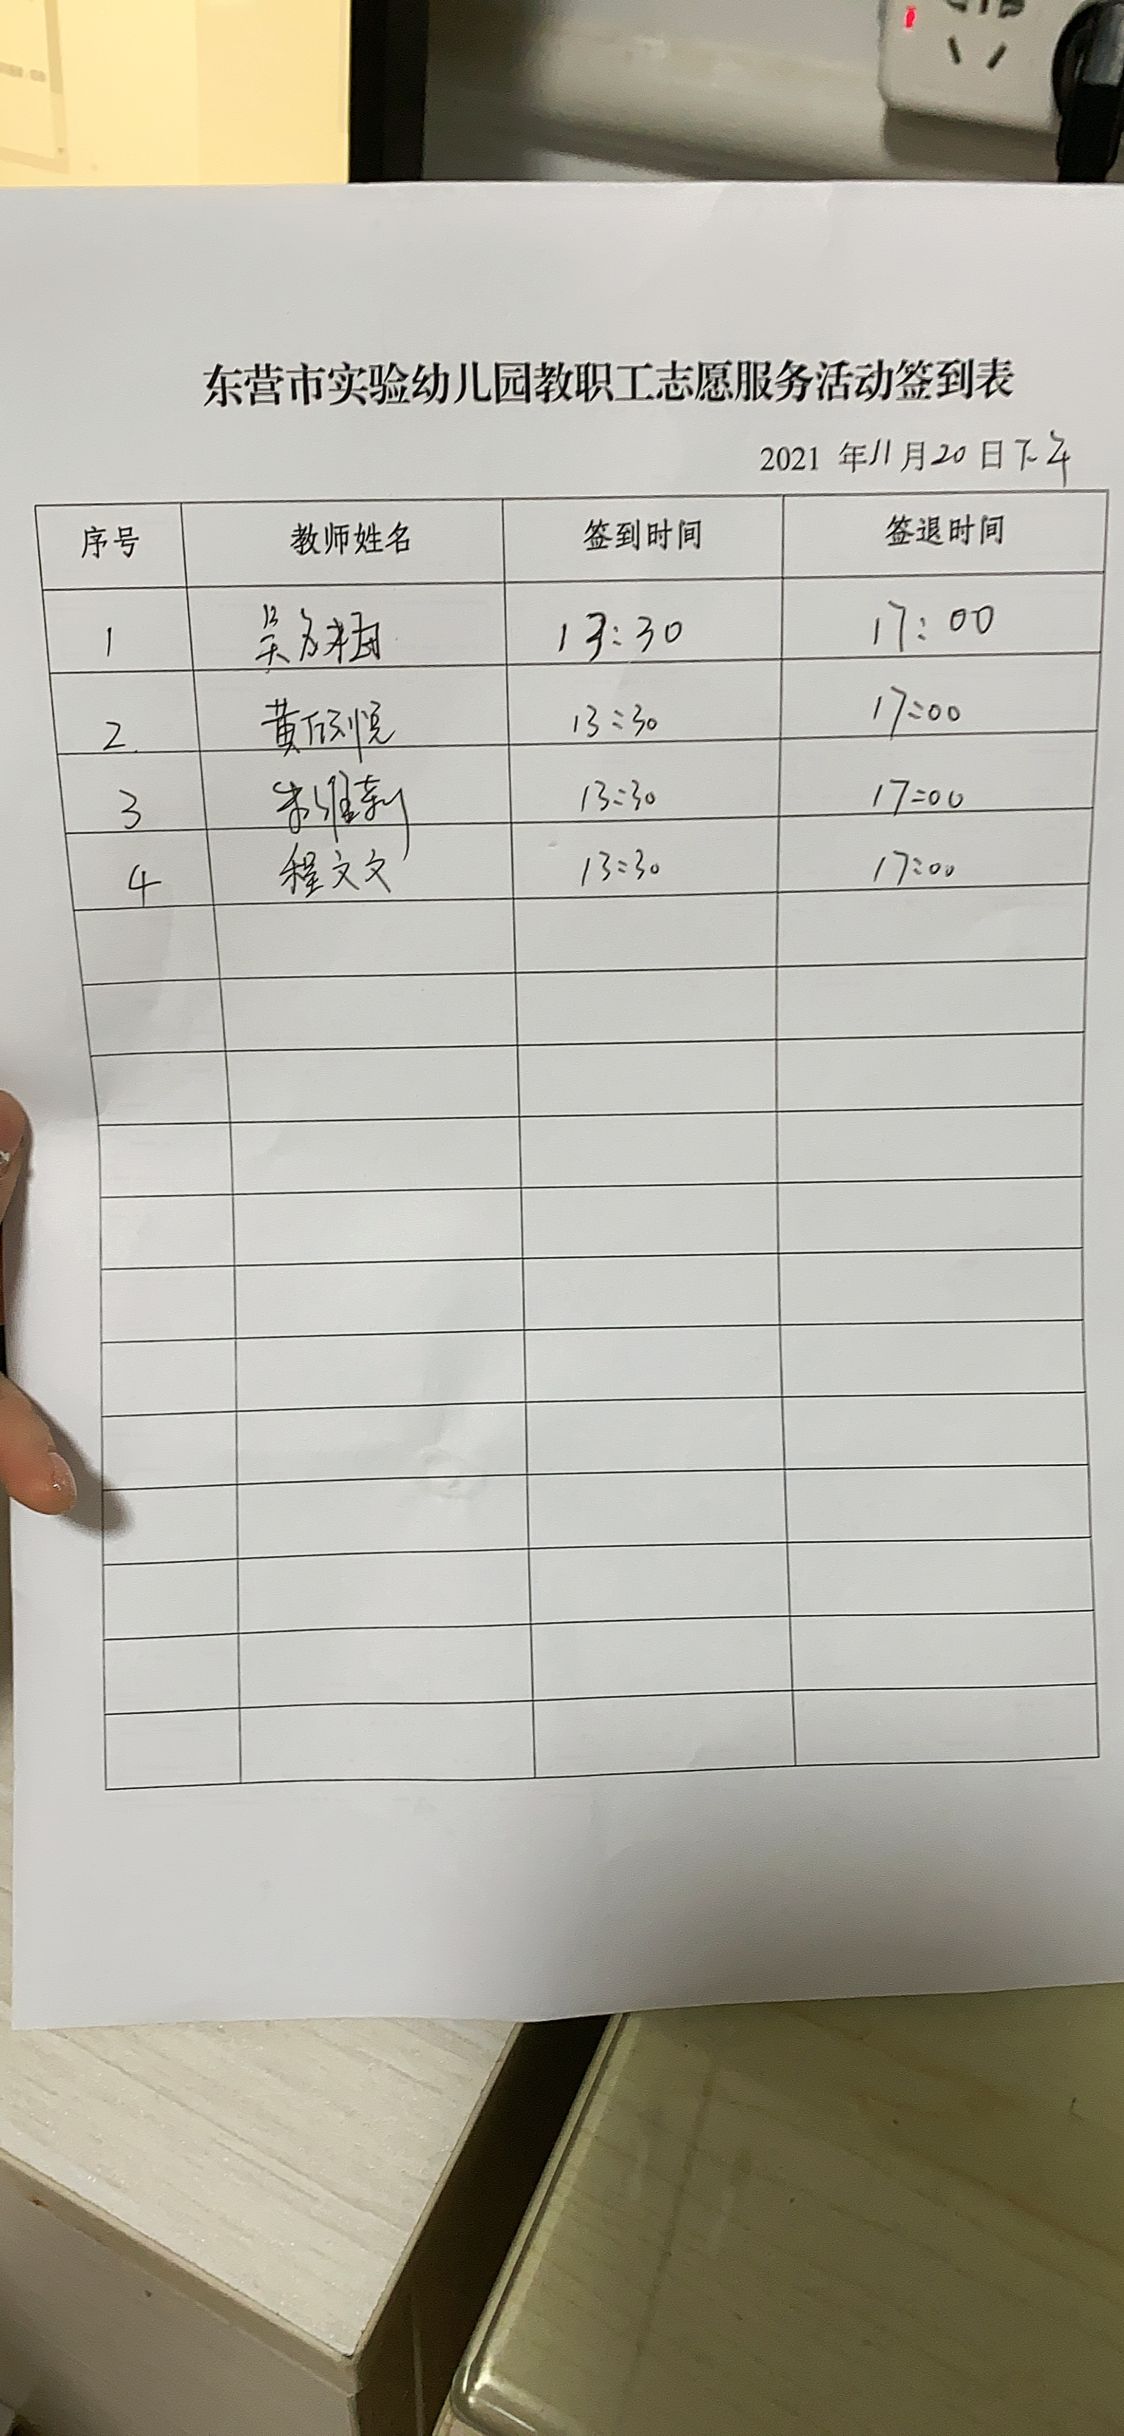 东营市实验幼儿园教职工志愿服务活动签到表
2021 年11月20日下午
序号 教师姓名 签到时间 签退时间
1 吴 13:30 17:00
2. 黄 悦 13:30 17:00
3 朱维莉 13:30 17:00
4 程文文 13:30 17:00